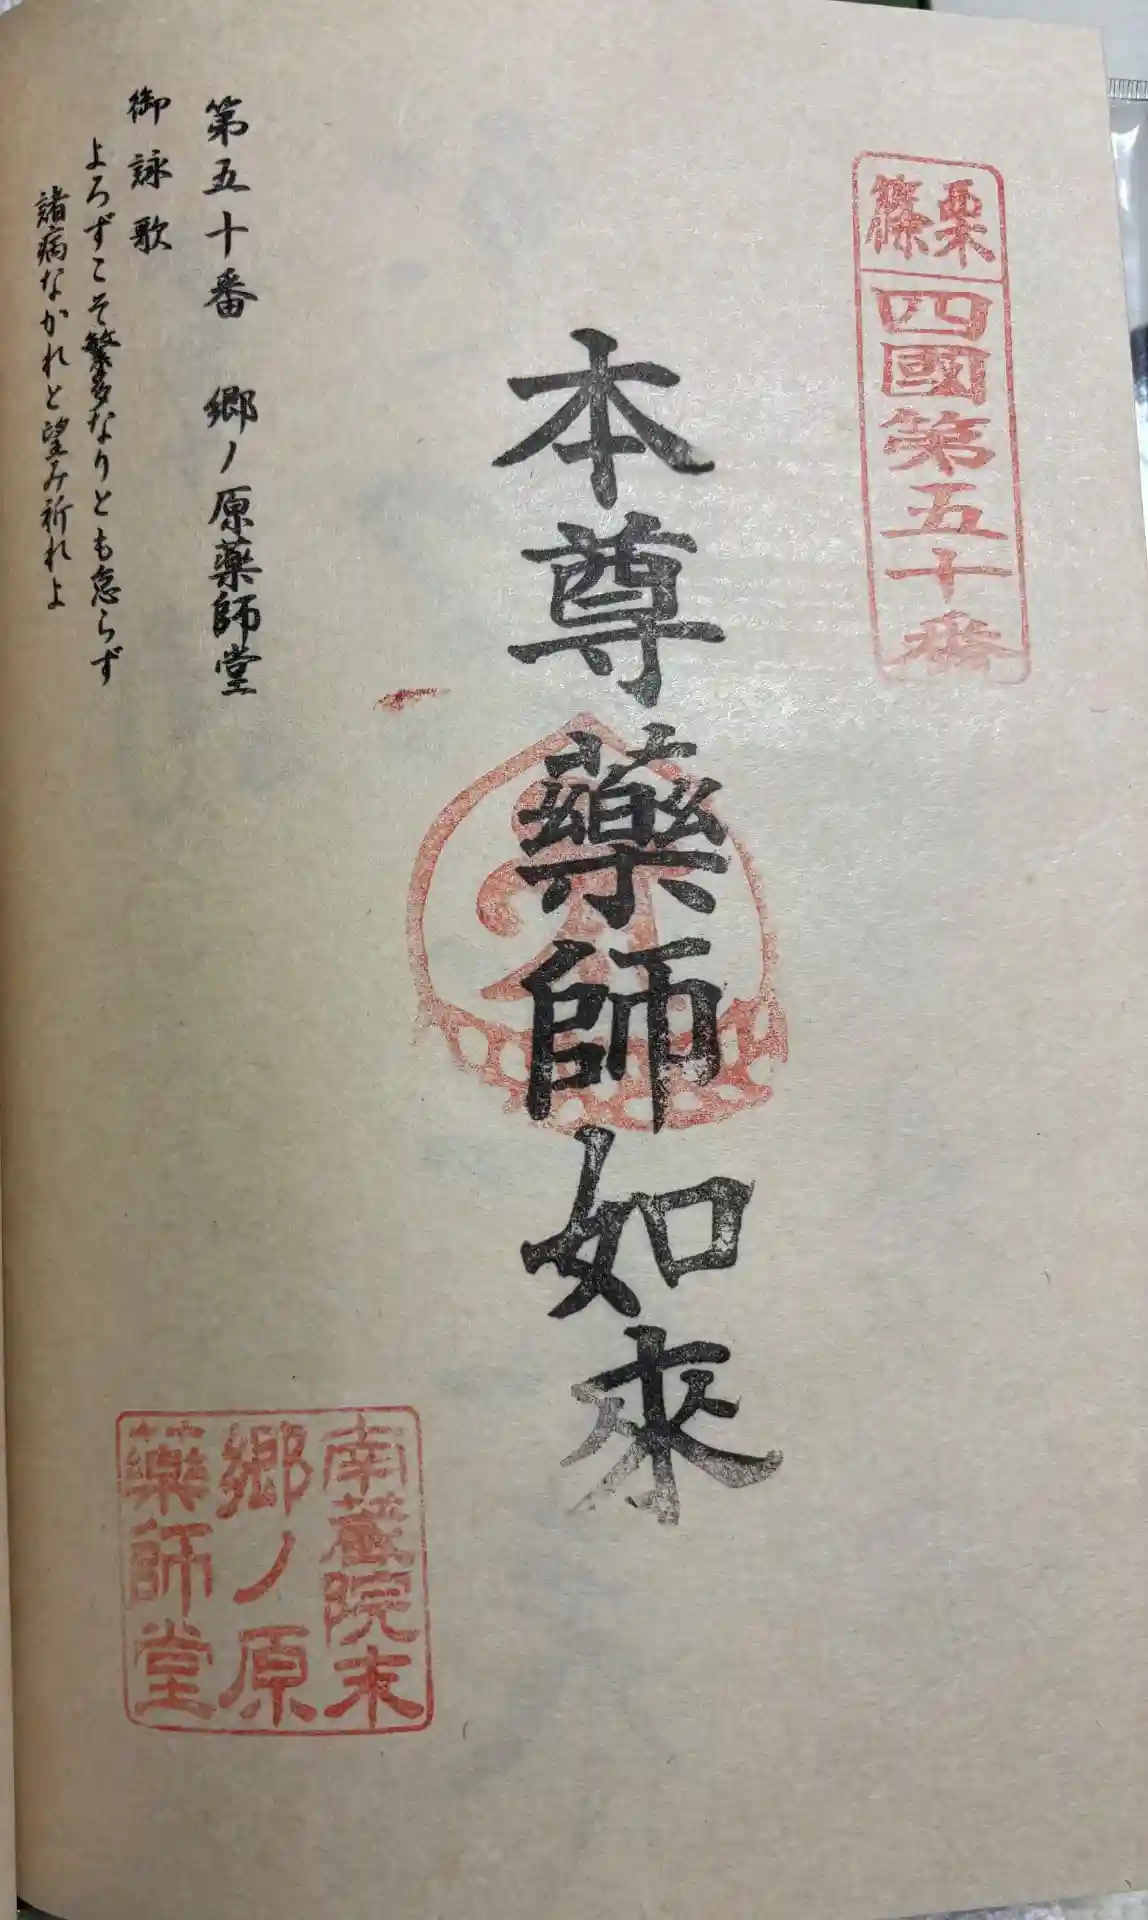 篠栗
四國第五十番
本尊藥師如來
第五十番 郷ノ原薬師堂
御詠歌
よろずこそ繁多なりとも怠らず
諸病なかれと望み祈れよ
南蔵院末
郷ノ原
藥師堂